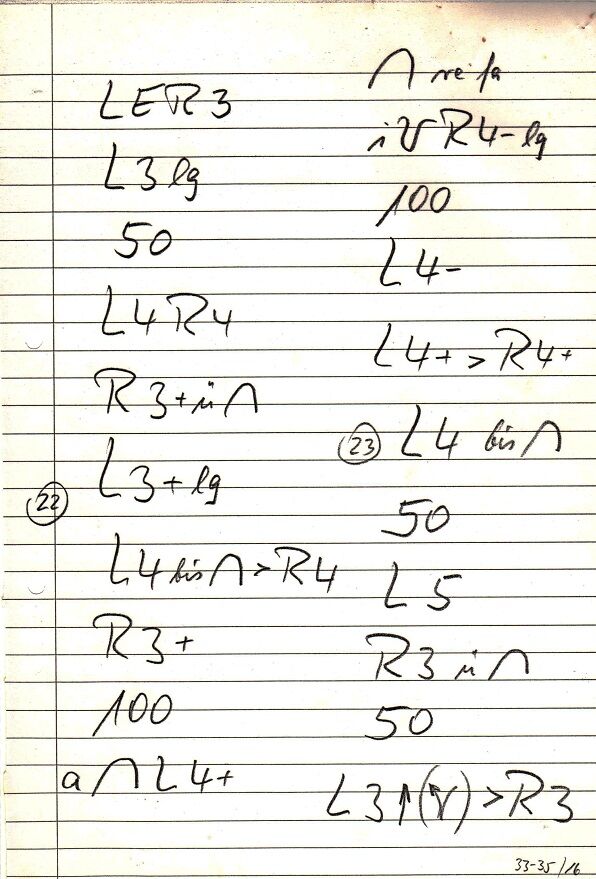 LER3
L3 lg
50
L4 R4
R3+ ü ∩
L3+ lg
22
L4 bis ∩ > R4
R3+
100
a ∩ L4+
∩ re fa
R4- lg
100
L4-
L4+ > R4+
23 L4 bis ∩
50
L5
R3 ü ∩
50
L3 ↑ > R3
33-35/16